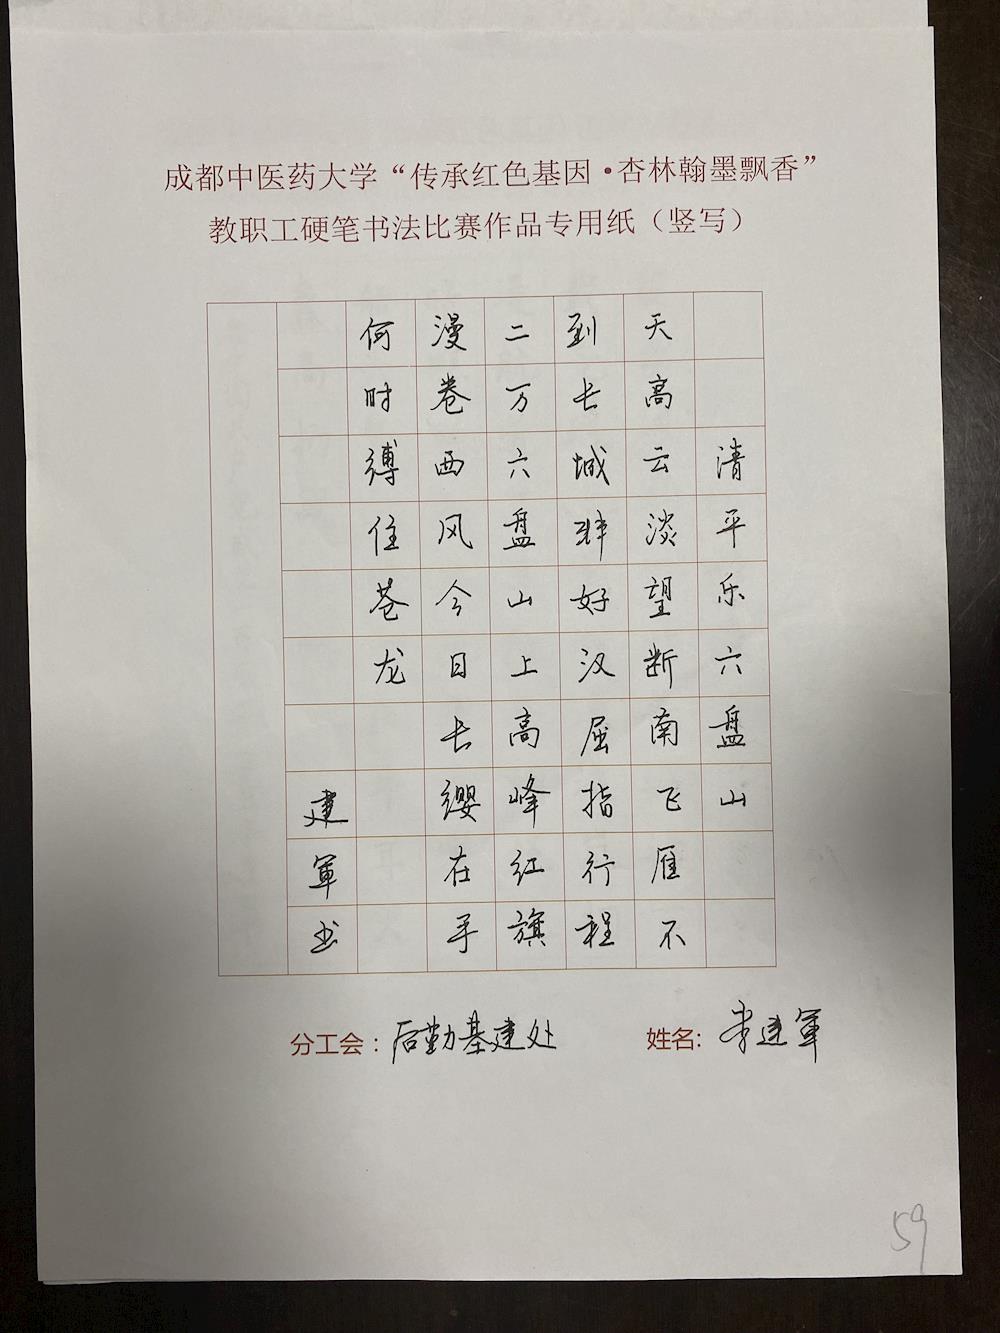 成都中医药大学“传承红色基因·杏林翰墨飘香”
教职工硬笔书法比赛作品专用纸（竖写）
清平乐六盘山
天高云淡望断南飞雁不
到长城非好汉屈指行程
二万六盘山上高峰红旗
漫卷西风今日长缨在手
何时缚住苍龙
建軍书
分工会：后勤基建处
姓名：李建軍
59